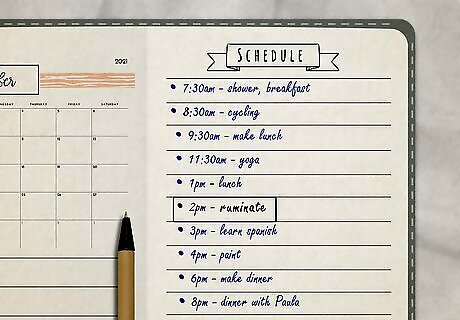 2021
THURSDAY FRIDAY SATURDAY
SCHEDULE
• 7:30am - shower, breakfast
• 8:30am - cycling
• 9:30am - make lunch
• 11:30am - yoga
• 1pm - lunch
• 2pm - ruminate
• 3pm - learn spanish
• 4pm - paint
• 6pm - make dinner
• 8pm - dinner with Paula